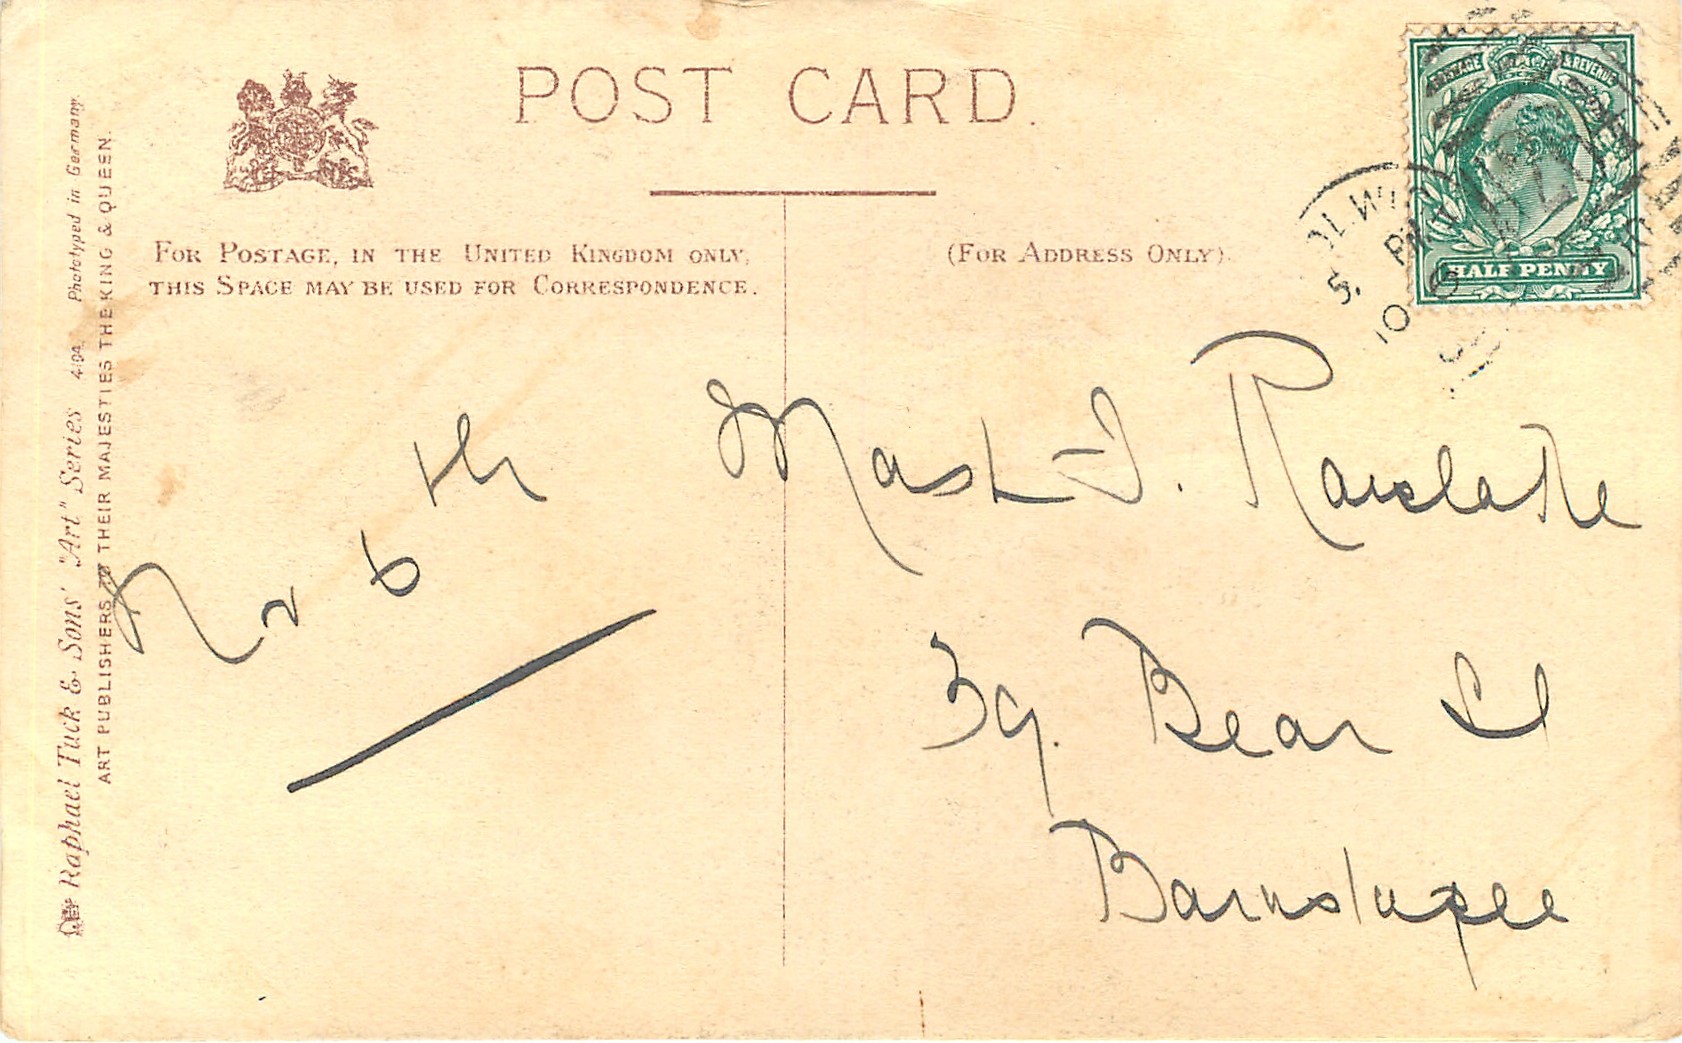 POST CARD.
FOR POSTAGE, IN THE UNITED KINGDOM ONLY,
THIS SPACE MAY BE USED FOR CORRESPONDENCE.
(FOR ADDRESS ONLY).
POSTAGE & REVENUE
HALF PENNY
Raphael Tuck & Sons' "Art" Series 4194. Phototyped in Germany.
ART PUBLISHERS TO THEIR MAJESTIES THE KING & QUEEN.
6th
Mast J.
39. Bear St
Barnstaple